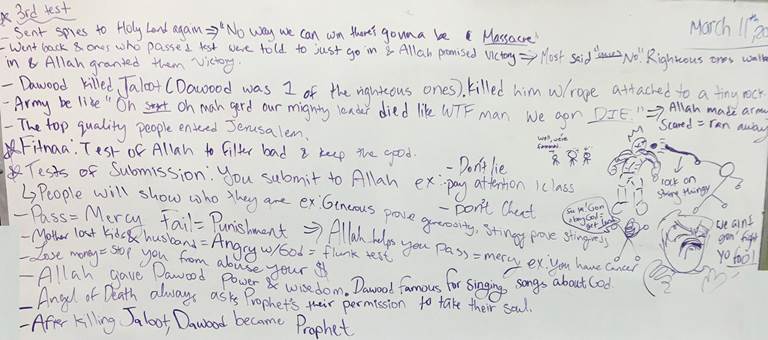 * 3rd test
March 11th, 20
- Sent spies to Holy Land again ⇒ "No way we can win there's gonna be a Massacre"
- Went back & ones who passed test were told to just go in & Allah promised victory ⇒ Most said "No". Righteous ones walked
in & Allah granted them victory.
- Dawood killed Jaloot (Dawood was 1 of the righteous ones). Killed him w/rope attached to a tiny rock.
- Army be like "Oh oh mah gerd our mighty leader died like WTF man we gon DIE." ⇒ Allah made army
scared = ran away
- The top quality people entered Jerusalem.
* Fitnaa: Test of Allah to filter bad & keep the good.
* Tests of Submission: You submit to Allah ex:
- Don't lie
- pay attention 1 class
- Don't Cheat
↳ People will show who they are ex: Generous prove generosity, Stingy prove Stinginess
- Pass = Mercy Fail = Punishment ⇒ Allah helps you Pass = mercy ex: you have cancer
- Mother lost kids & husband = Angry w/God = flunk test
- Lose money = stop you from abuse your $
- Allah gave Dawood Power & wisdom. Dawood famous for singing songs about God.
- Angel of Death always asks Prophet's their permission to take their soul.
- After killing Jaloot, Dawood became Prophet
Well, we're
rock on
string thingy
we ain't
gon' fight
yo fool!